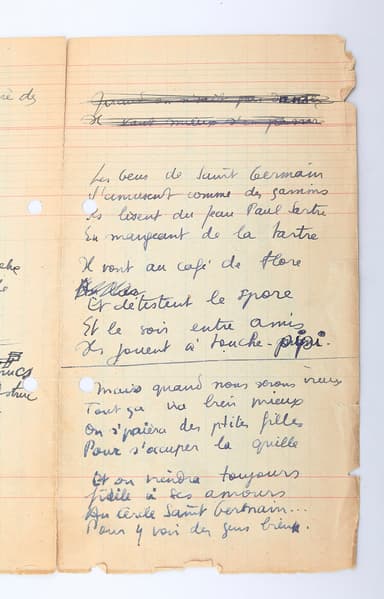 ère de
Quand on n'était pas
Il vaut mieux s'en passer
Les Gens de Saint Germain
S'amusent comme des gamins
Ils lisent du Jean Paul Sartre
En mangeant de la tartre
Il vont au café de Flore
Et détestent le spore
Et le soir entre amis
Ils jouent à touche-pipi.
Mais quand nous serons vieux
Tout ça ira bien mieux
On s'paiera des p'tites filles
Pour s'accuper la quille
Et on viendra toujours
fidèle à ses amours
Au Cercle Saint Germain...
Pour y voir des gens biens.